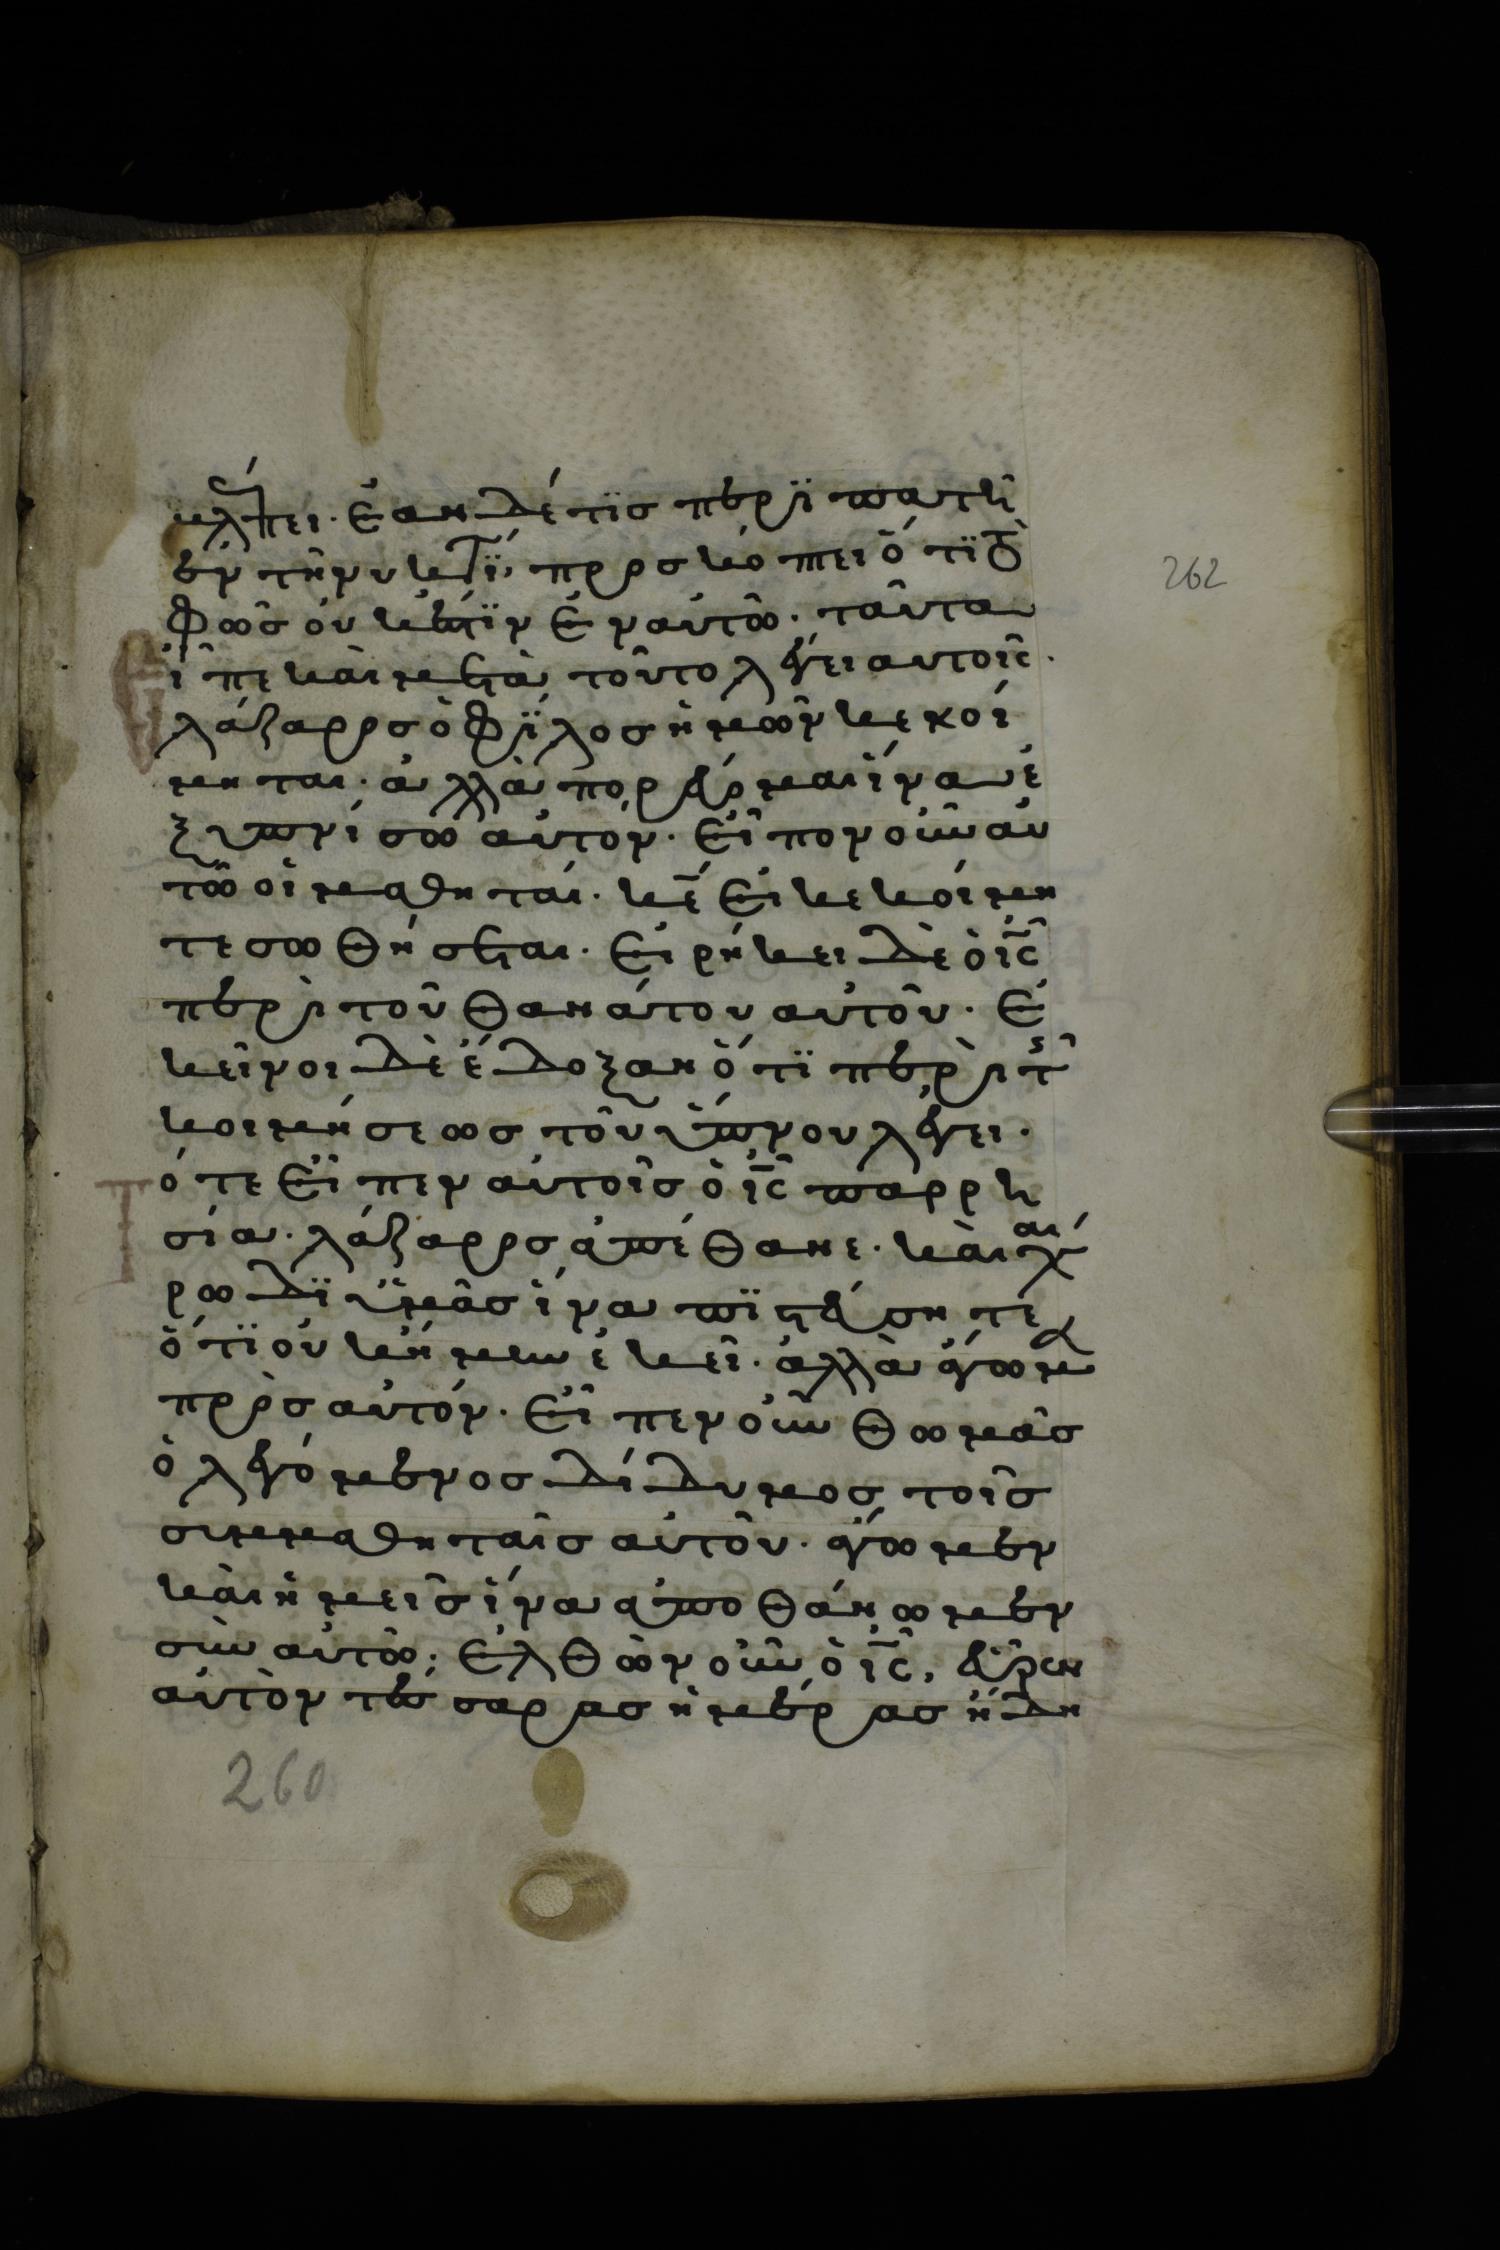 βλέπει. ἐὰν δέ τϊσ περϊπατῆ
ἐν τῆ νυκτϊ, προσκόπτει ὅτϊ τὸ
φῶσ οὐκ ἐστϊν ἐν αὐτῶ. ταῦτα
262
εἶπε καὶ μετὰ τοῦτο λέγει αυτοῖς.
λάζαροσ ὁ φϊλοσ ἡμῶν κεκοί
μηται. ἀλλὰ πορεύομαι ἵνα ἐ
ξυπνίσω αὐτόν. Εἶπον οὖν αὐ
τῶ οἱ μαθηταί. κε̄ εἰ κεκοίμη
τε σωθήσεται. Εἰρήκει δὲ ὁ ις̄
περὶ τοῦ θανάτου αὐτοῦ. Ἐ
κεῖνοι δὲ ἔδοξαν ὅτϊ περὶ τῆς
κοιμήσεωσ τοῦ ὕπνου λέγει.
Τότε εἶπεν αὐτοῖσ ὁ ις̄ παρρη
σία. λάζαροσ ἀπέθανε. καὶ χαί
ρω δϊ ὑμᾶσ ἵνα πϊστεύσητε
ὅτϊ οὐκ ἤμην ἐκεῖ. ἀλλὰ ἄγωμε
πρὸσ αὐτόν. Εἶπεν οὖν Θωμᾶσ
ὁ λεγόμενοσ δίδυμοσ τοῖσ
συμμαθηταῖσ αὐτοῦ. ἄγωμεν
καὶ ἡμεῖσ ἵνα ἀποθάνωμεν
σὺν αὐτῶ. Ἐλθὼν οὖν ὁ ις̄, εὗρεν
αὐτὸν τέσσαρασ ἡμέρασ ἤδη
260